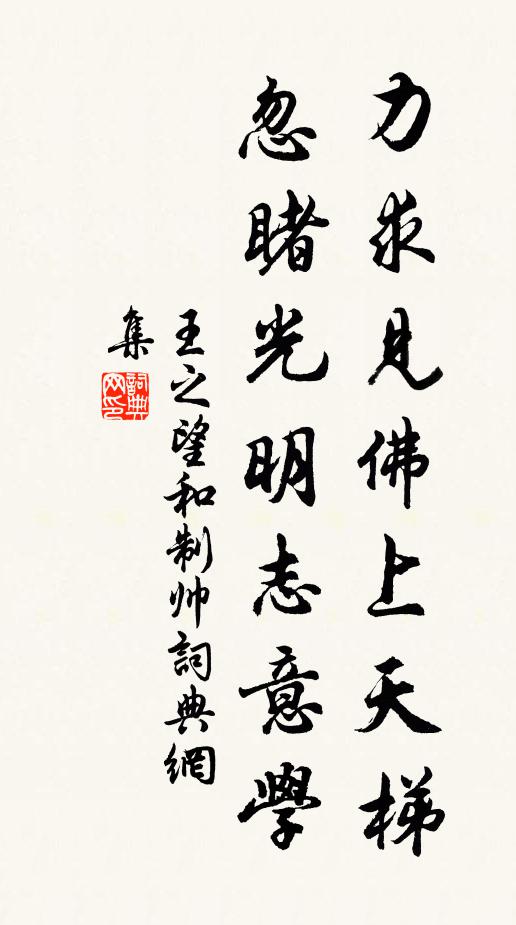 力求見佛上天梯
忽睹光明志意學
王之望和制帅詞典網
集
詞典
网印